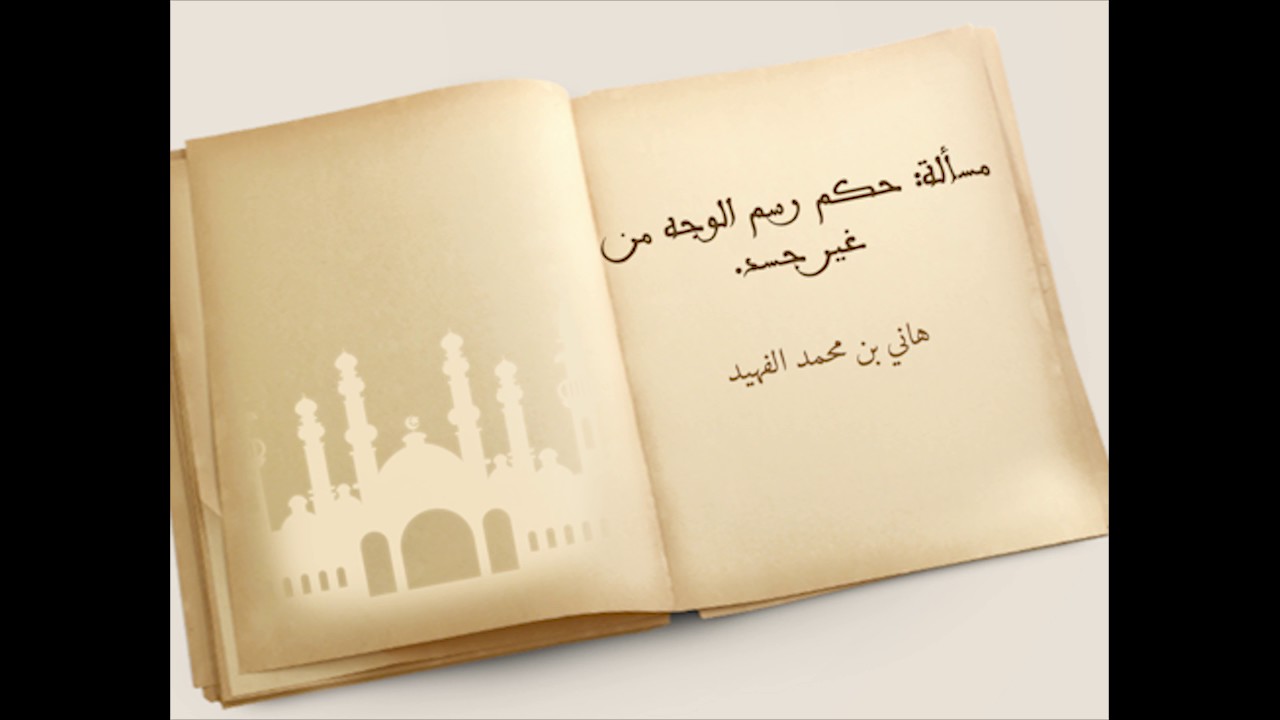 مسألة: حكم رسم الوجه من
غير جسد.
هاني بن محمد الفهيد